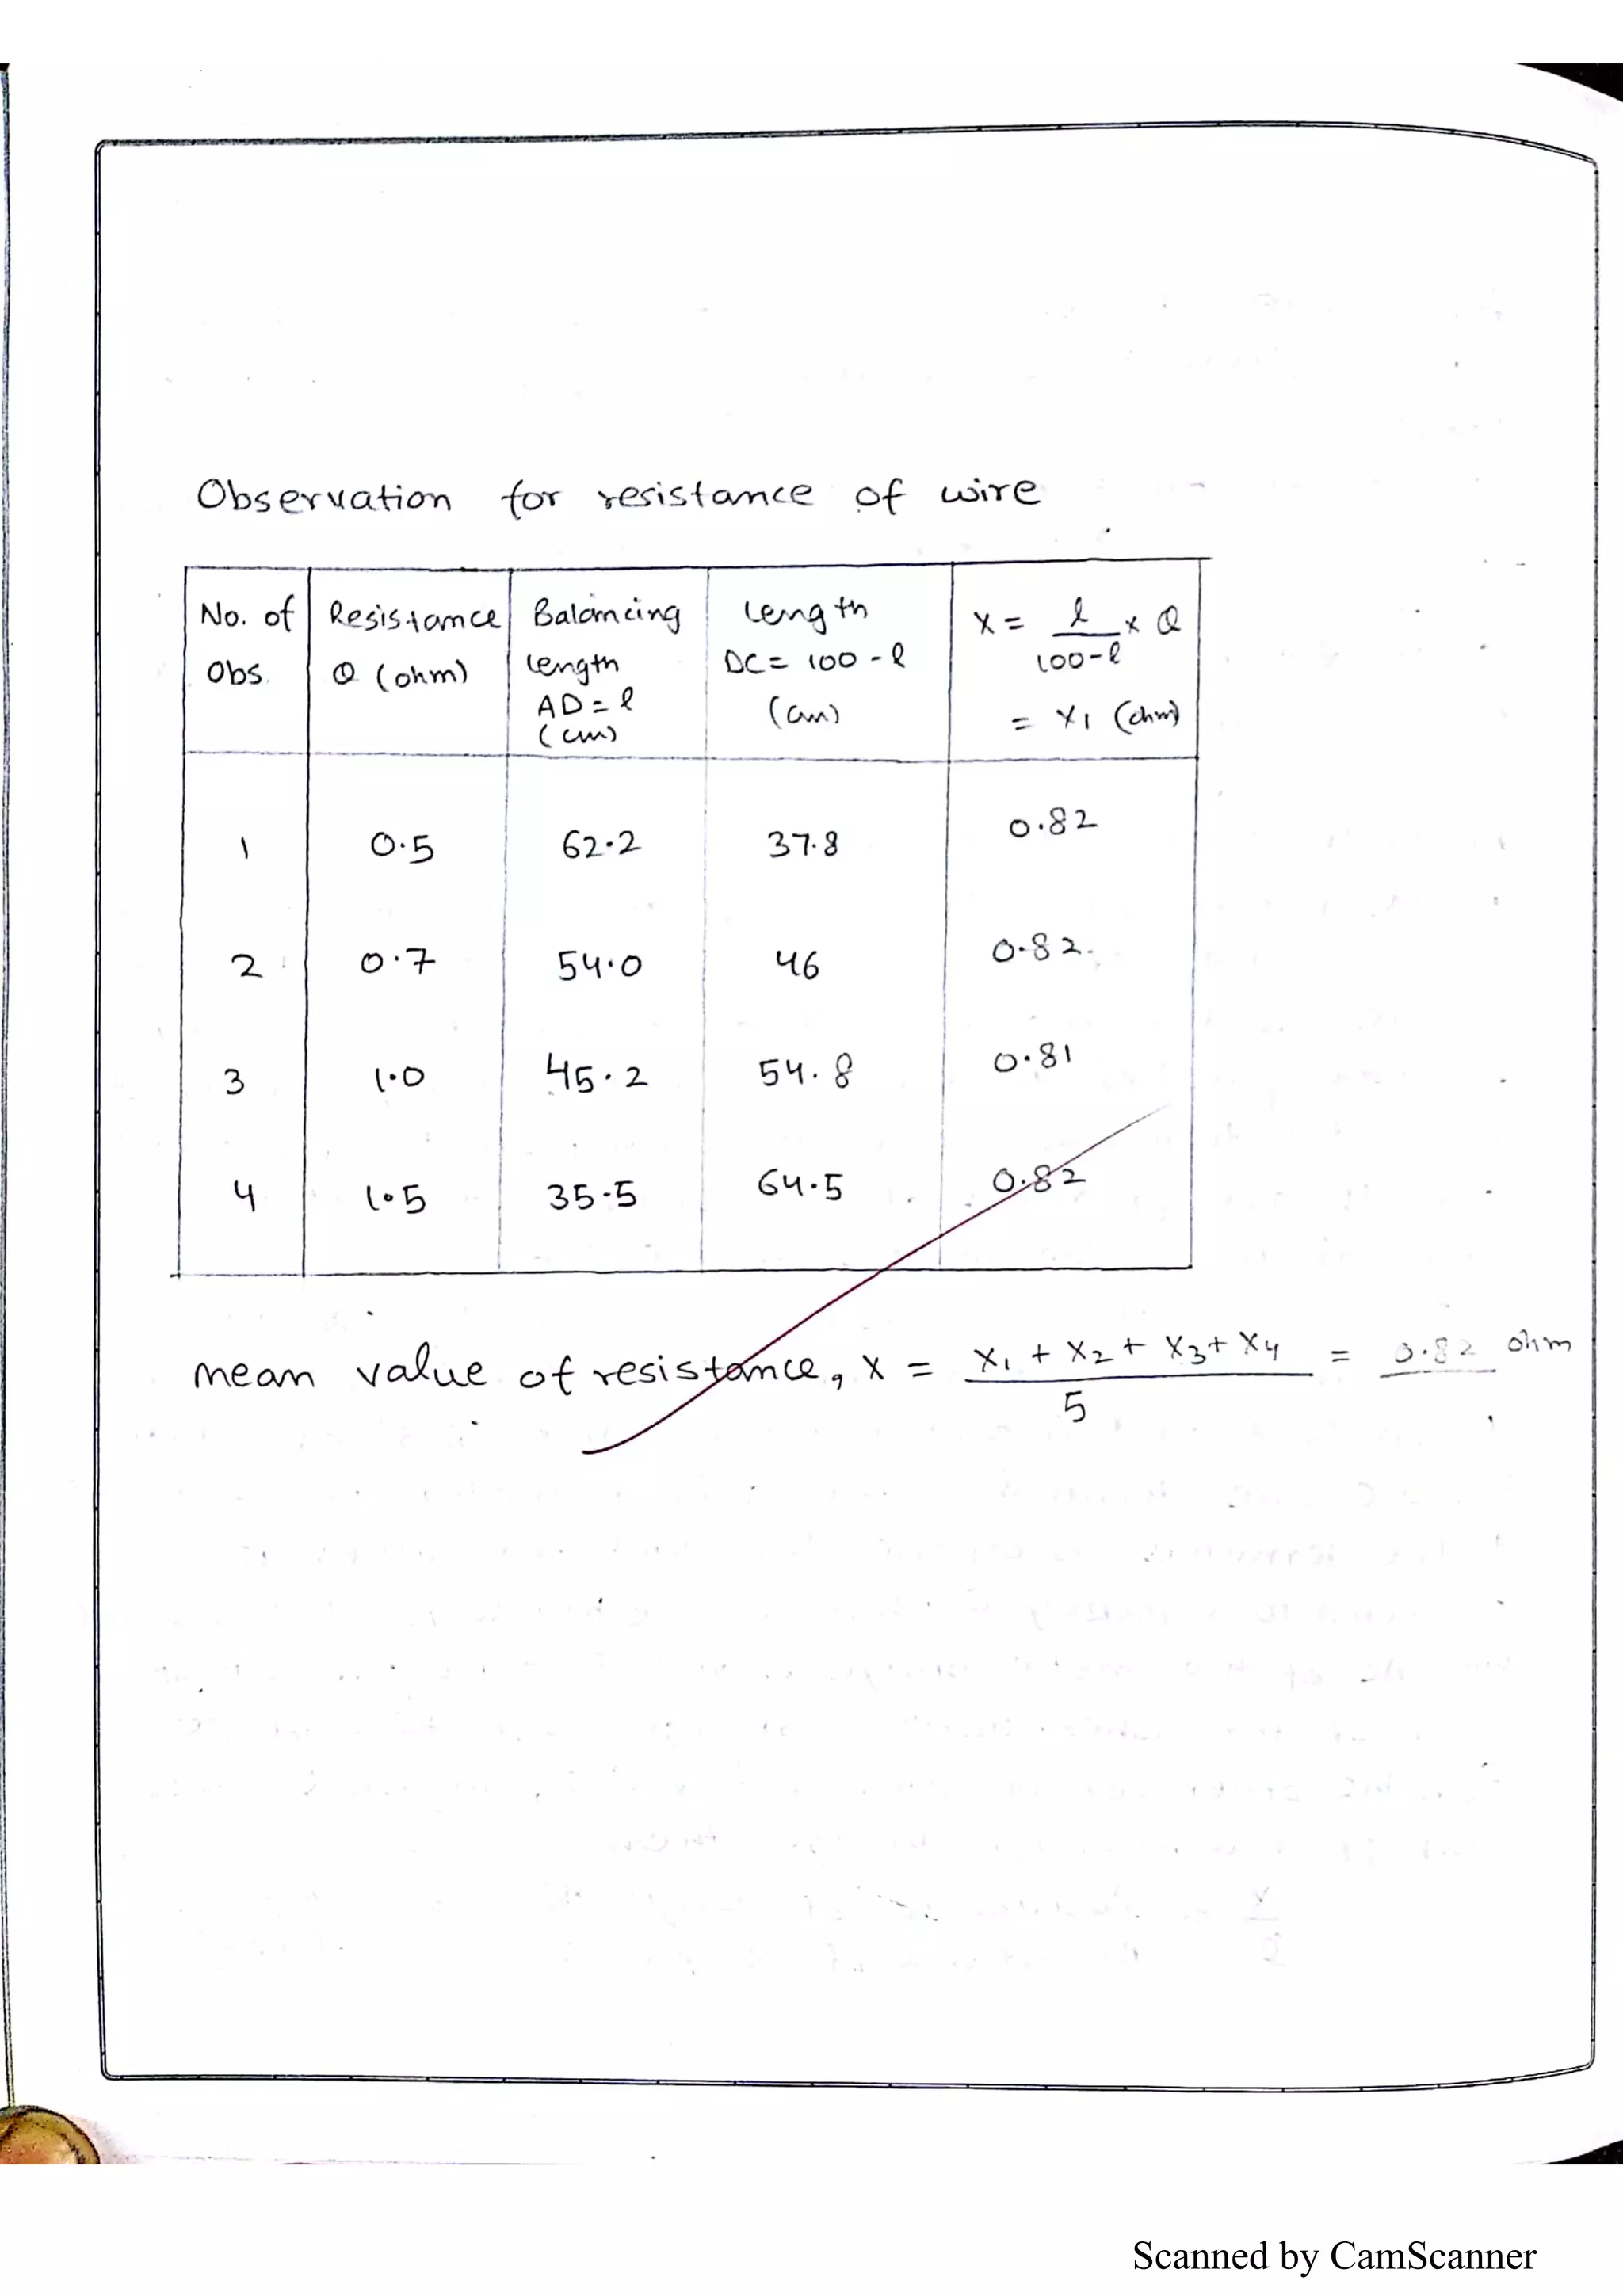 Observation for resistance of wire
No. of Obs. | Resistance Q (ohm) | Balancing length AD = l (cm) | Length DC = 100 - l (cm) | X = l / 100-l x Q = X1 (ohm)
1 | 0.5 | 62.2 | 37.8 | 0.82
2 | 0.7 | 54.0 | 46 | 0.82
3 | 1.0 | 45.2 | 54.8 | 0.81
4 | 1.5 | 35.5 | 64.5 | 0.82
mean value of resistance, X = X1 + X2 + X3 + X4 / 5 = 0.82 ohm
Scanned by CamScanner